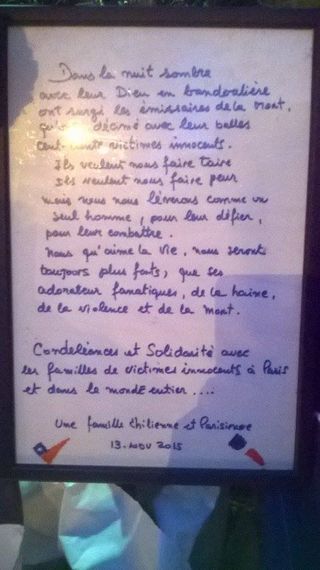 Dans la nuit sombre
avec leur Dieu en bandoulière
ont surgi les émissaires de la Mort,
décimé avec leur belles
victimes innocents.
Ils veulent nous faire taire
Ils veulent nous faire peur
mais nous nous lèverons comme un
seul homme, pour leur défier,
pour leur combattre.
nous qu'aime la Vie, nous seront
toujours plus forts, que ses
adorateur fanatiques, de la haine,
de la violence et de la mort.
Condeléances et Solidarité avec
les familles de victimes innocents à Paris
et dans le monde entier ....
Une famille Chilienne et Parisienne
13. NOV 2015